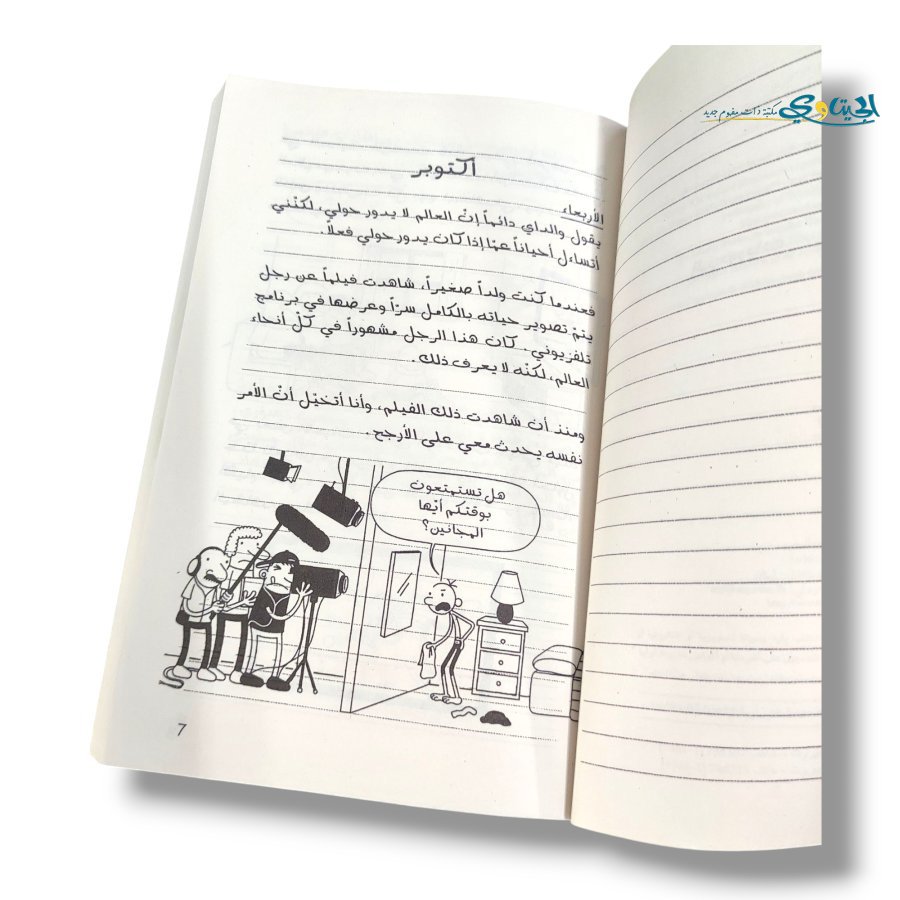 الجيتاوي
مكتبة ذات مفهوم جديد
اكتوبر
الأربعاء
يقول والداي دائماً إنّ العالم لا يدور حولي، لكنّني
أتساءل أحياناً عمّا إذا كان يدور حولي فعلاً.
فعندما كنت ولداً صغيراً، شاهدت فيلماً عن رجل
يتمّ تصوير حياته بالكامل سرّاً وعرضها في برنامج
تلفزيوني. كان هذا الرجل مشهوراً في كلّ أنحاء
العالم، لكنّه لا يعرف ذلك.
ومنذ أن شاهدت ذلك الفيلم، وأنا أتخيّل أنّ الأمر
نفسه يحدث معي على الأرجح.
هل تستمتعون
بوقتكم أيّها
المجانين؟
7